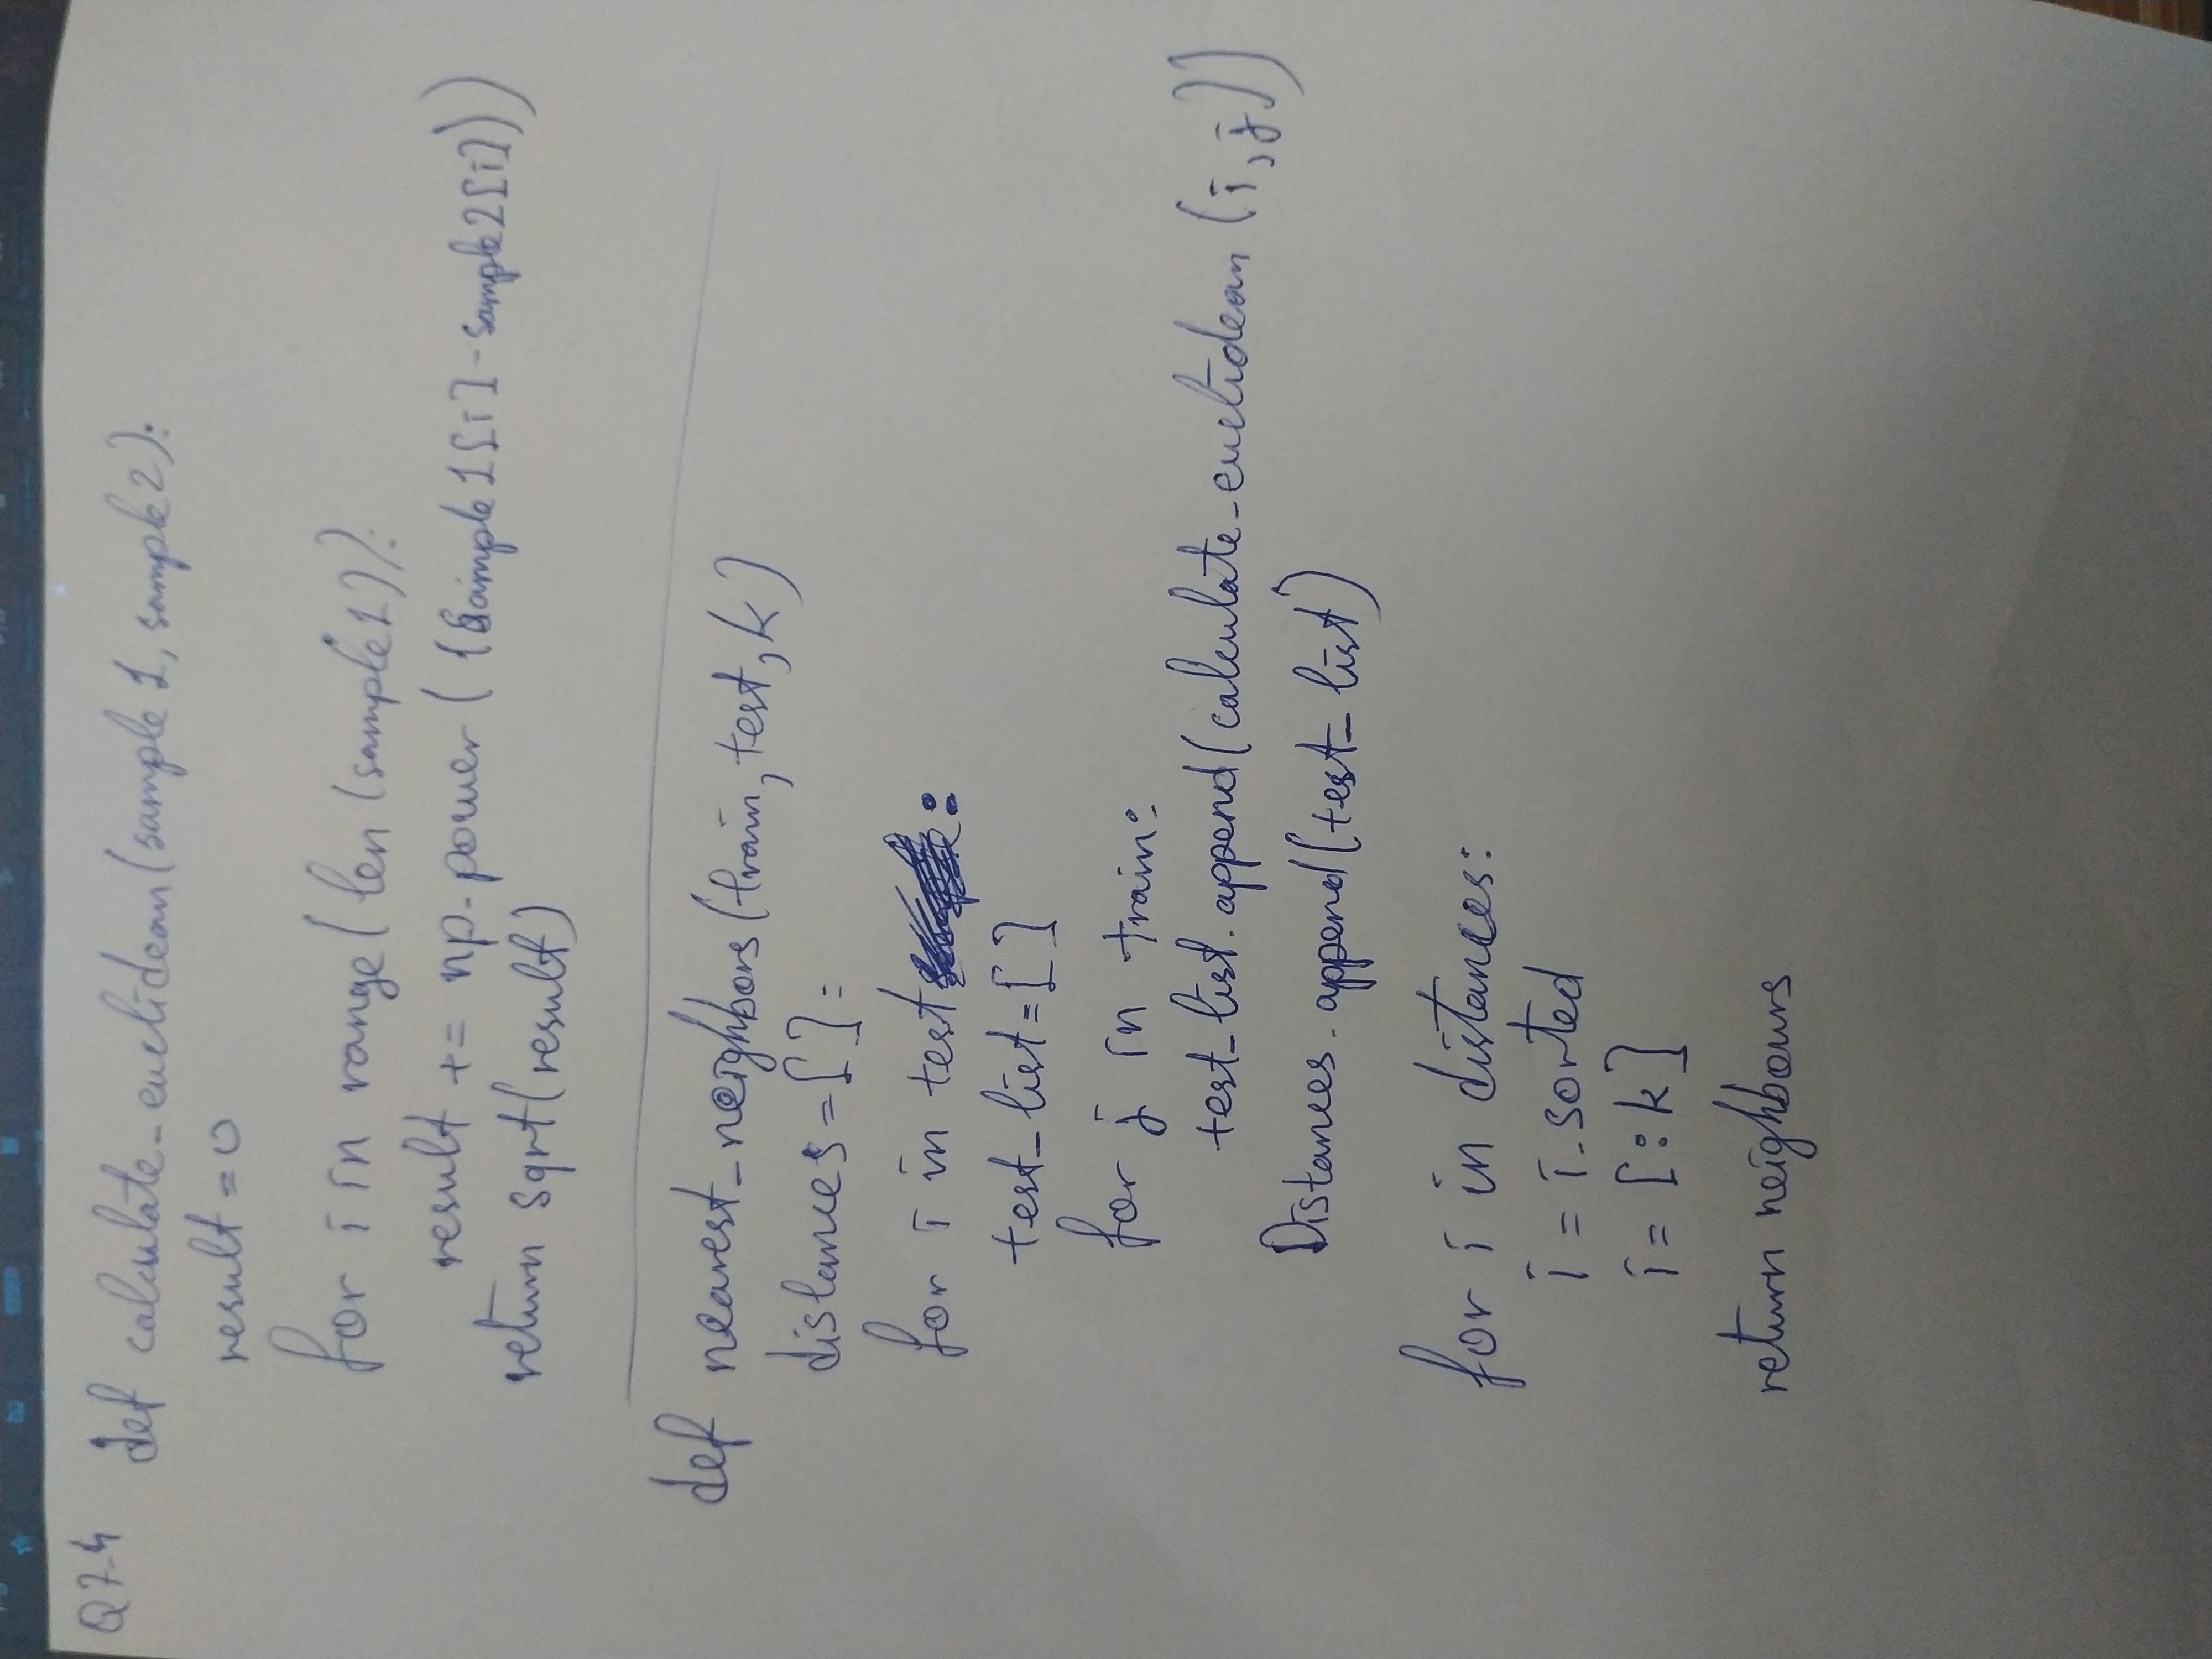 Q7.4
def calculate_euclidean(sample1, sample2):
result = 0
for i in range(len(sample1)):
result += np.power((sample1[i]-sample2[i]))
return sqrt(result)
def nearest_neighbors(train, test, k)
distances = []:
for i in test:
test_list = []
for j in train:
test_list.append(calculate_euclidean(i,j))
Distances.append(test_list)
for i in distances:
i = i.sorted
i = [:k]
return neighbours